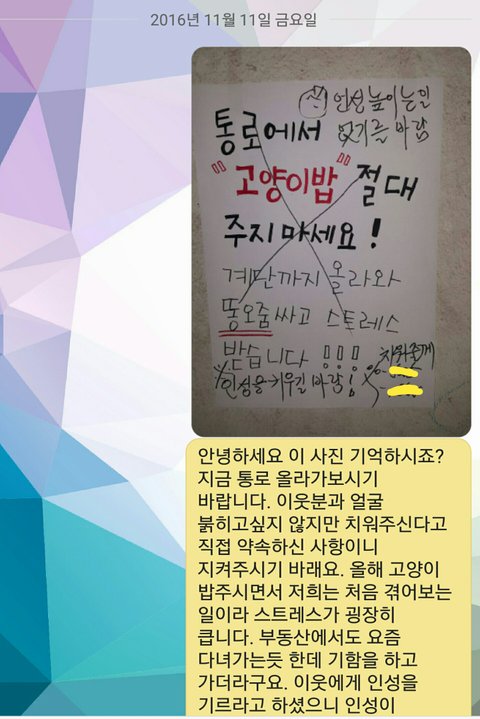 2016년 11월 11일 금요일
인성 높이는일
있기를 바람
통로에서
"고양이밥" 절대
주지 마세요!
계단까지 올라와
똥오줌싸고 스트레스
받습니다 !!!
치워줄게
인성을 키우길 바람!
안녕하세요 이 사진 기억하시죠?
지금 통로 올라가보시기
바랍니다. 이웃분과 얼굴
붉히고싶지 않지만 치워주신다고
직접 약속하신 사항이니
지켜주시기 바래요. 올해 고양이
밥주시면서 저희는 처음 겪어보는
일이라 스트레스가 굉장히
큽니다. 부동산에서도 요즘
다녀가는듯 한데 기함을 하고
가더라구요. 이웃에게 인성을
기르라고 하셨으니 인성이